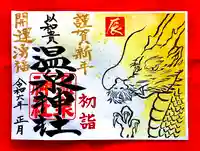 謹賀新年
以和貴
温泉神社
開運満福
令和六年 正月
初詣
辰